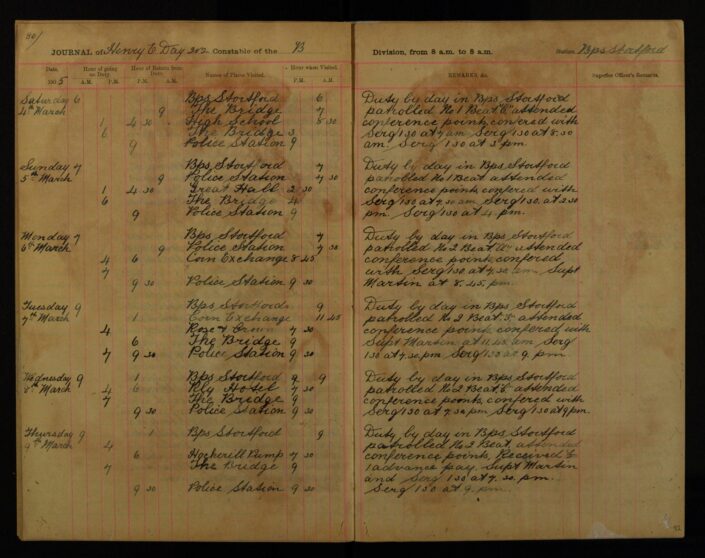 30/
JOURNAL of Henry E Day 302 Constable of the B Division, from 8 a.m. to 8 a.m. Station Bps Stortford
Date, Hour of going on Duty. Hour of Return from Duty. Names of Places Visited. Hour when Visited. REMARKS, &c. Superior Officer's Remarks.
190 5 A.M. P.M. A.M. P.M. P.M. A.M.
Saturday 6 Bps Stortford 6 Duty by day in Bps Stortford
4th March 9 The Bridge 7 patrolled No 1 Beat attended
1 4 30 High School 8 30 conference points confered with
6 The Bridge 3 Serg 130 at 7 am Serg 130 at 8.30
9 Police Station 9 am Serg 130 at 3 pm.
Sunday 7 Bps Stortford 7 Duty by day in Bps Stortford
5th March 9 Police Station 7 30 patrolled No 1 Beat attended
1 4 30 Great Hall 2 30 conference points confered with
6 The Bridge 4 Serg 130 at 7.30 am Serg 130 at 2.30
9 Police Station 9 pm. Serg 130 at 4 pm.
Monday 7 Bps Stortford 7 Duty by day in Bps Stortford
6th March 9 Police Station 7 30 patrolled No 2 Beat attended
4 6 Corn Exchange 8 45 conference points confered
7 with Serg 130 at 7.30 am Supt
9 30 Police Station 9 30 Martin at 8.45 pm.
Tuesday 9 Bps Stortford 9 Duty by day in Bps Stortford
7th March 1 Corn Exchange 11 45 patrolled No 2 Beat attended
4 Rose & Crown 7 30 conference points confered with
6 The Bridge 9 Supt Martin at 11.45 am Serg
7 9 30 Police Station 9 30 130 at 7.30 pm. Serg 130 at 9 pm.
Wednesday 9 1 Bps Stortford 9 9 Duty by day in Bps Stortford
8th March 4 6 Hotel 7 30 patrolled No 2 Beat attended
7 The Bridge 9 conference points confered with
9 30 Police Station 9 30 Serg 130 at 7.30 pm Serg 130 at 9 pm.
Thursday 9 1 Bps Stortford 9 Duty by day in Bps Stortford
9th March 4 patrolled No 2 Beat attended
6 Hockerill Pump 7 30 conference points Received £
7 The Bridge 9 1 advance pay Supt Martin
and Serg 130 at 7.30 pm.
9 30 Police Station 9 30 Serg 130 at 9 pm.